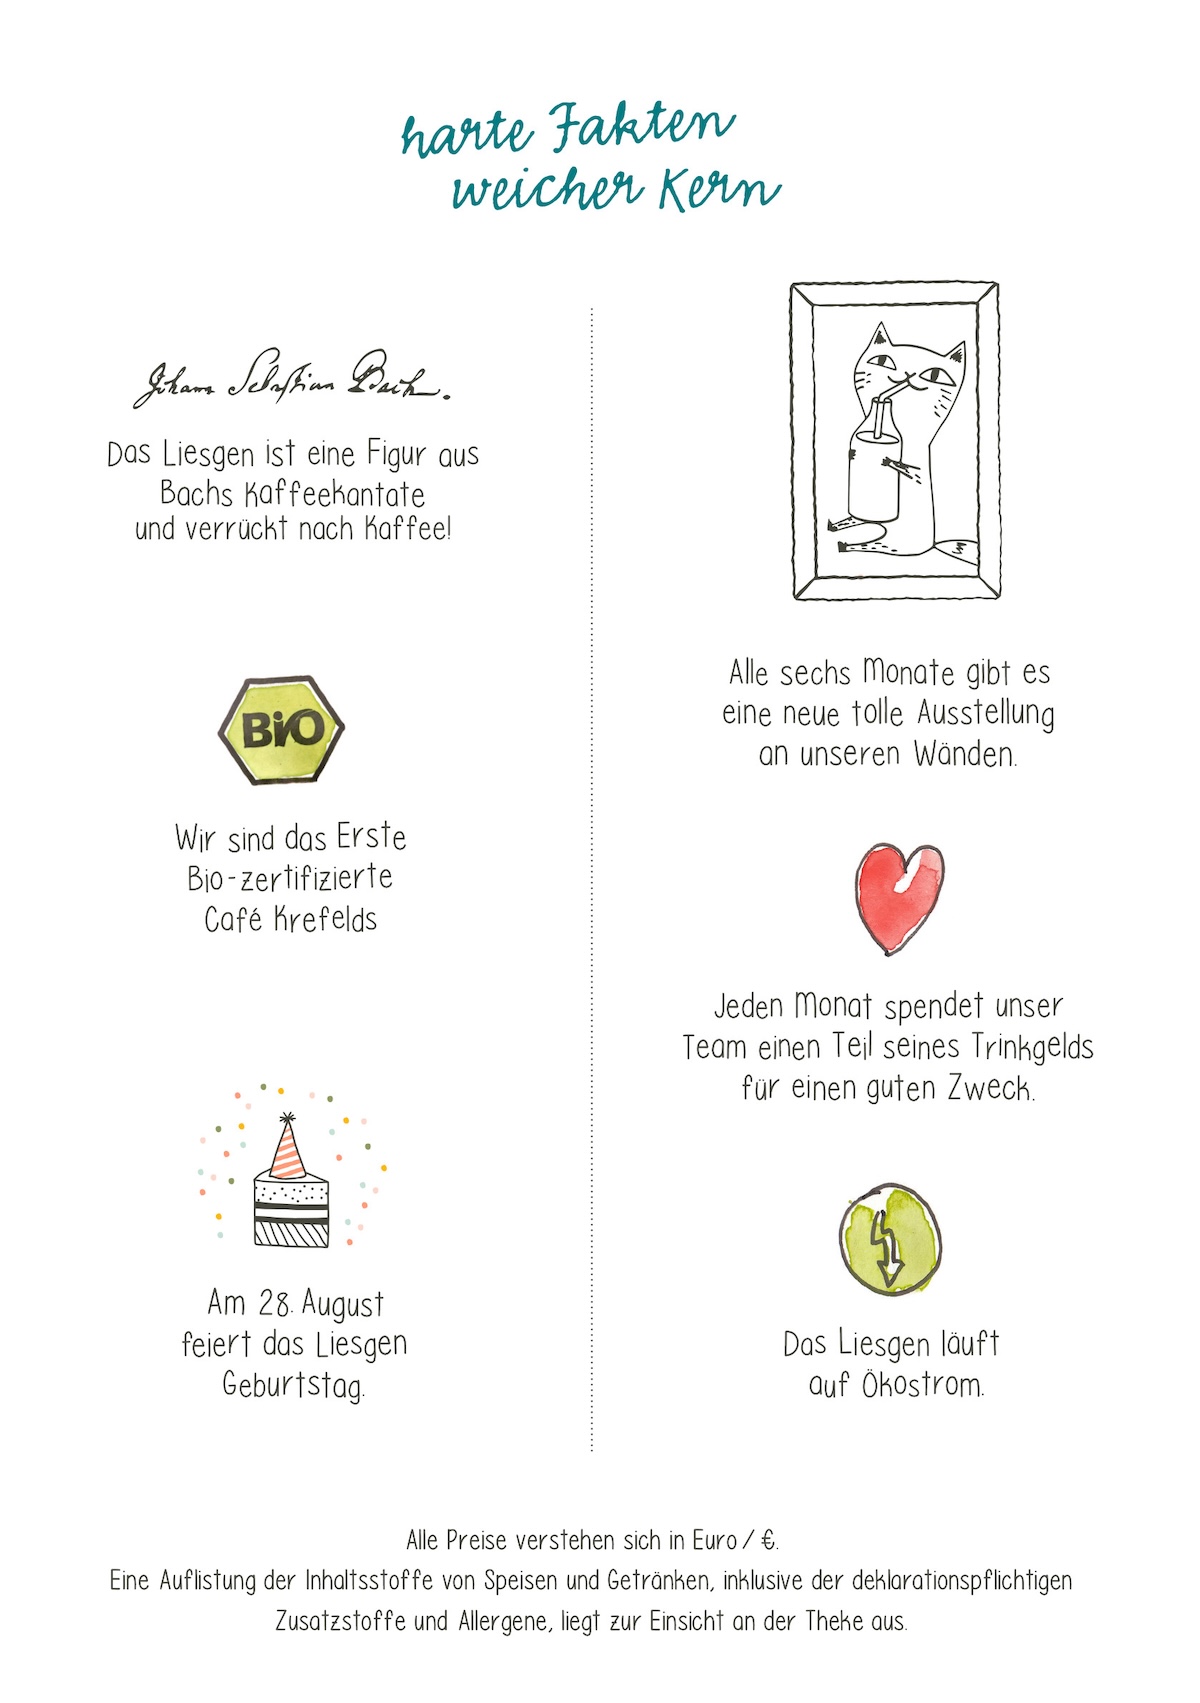 harte Fakten
weicher Kern
Johann Sebastian Bach.
Das Liesgen ist eine Figur aus
Bachs Kaffeekantate
und verrückt nach Kaffee!
BiO
Wir sind das Erste
Bio-zertifizierte
Café Krefelds
Am 28. August
feiert das Liesgen
Geburtstag.
Alle sechs Monate gibt es
eine neue tolle Ausstellung
an unseren Wänden.
Jeden Monat spendet unser
Team einen Teil seines Trinkgelds
für einen guten Zweck.
Das Liesgen läuft
auf Ökostrom.
Alle Preise verstehen sich in Euro / €.
Eine Auflistung der Inhaltsstoffe von Speisen und Getränken, inklusive der deklarationspflichtigen
Zusatzstoffe und Allergene, liegt zur Einsicht an der Theke aus.